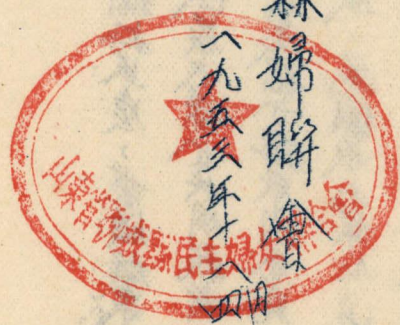 縣婦聯會
一九五三年十一
山東省郯城縣民主婦女聯合會